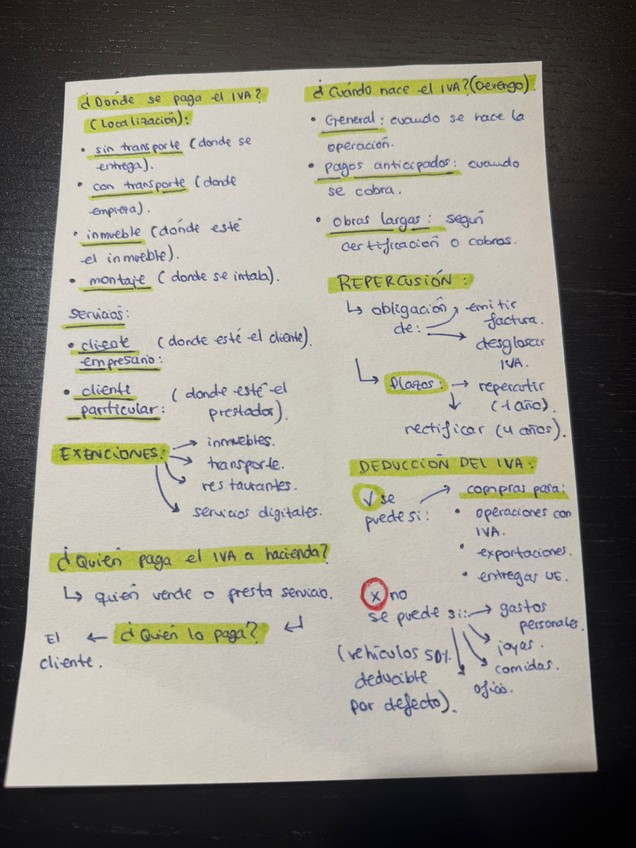 ¿Donde se paga el IVA?
(Localización):
• sin transporte (donde se
entrega).
• con transporte (donde
empieza).
• inmueble (donde esté
el inmueble).
• montaje (donde se intala).
servicios:
• cliente (donde esté el cliente).
empresario:
• cliente (donde esté el
particular: prestador).
EXENCIONES: → inmuebles.
→ transporte.
→ restaurantes.
→ servicios digitales.
¿Quién paga el IVA a hacienda?
↳ quien vende o presta servicio.
El ← ¿Quién lo paga? ↵
cliente.
¿Cuándo nace el IVA? (Devengo).
• General: cuando se hace la
operación.
• Pagos anticipados: cuando
se cobra.
• obras largas: según
certificación o cobros.
REPERCUSIÓN:
↳ obligación → emitir
de: factura.
→ desglosar
IVA.
↳ Plazos: → repercutir
↓ (1 año).
rectificar (4 años).
DEDUCCIÓN DEL IVA:
√ se → compras para:
puede si: • operaciones con
IVA.
• exportaciones.
• entregas UE.
x no
se puede si: → gastos
personales.
→ joyas.
→ comidas.
→
(vehículos 50%
deducible
por defecto).